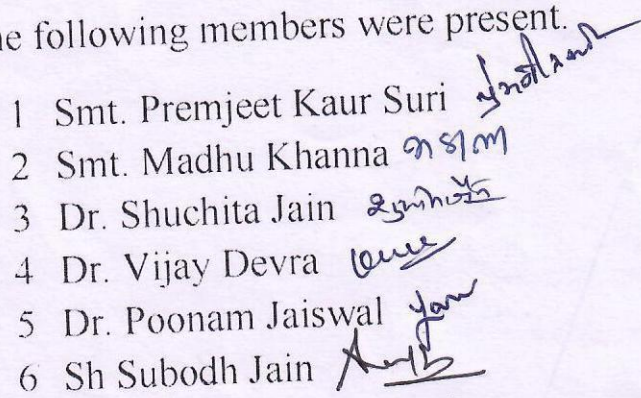 he following members were present.
1 Smt. Premjeet Kaur Suri
2 Smt. Madhu Khanna
3 Dr. Shuchita Jain
4 Dr. Vijay Devra
5 Dr. Poonam Jaiswal
6 Sh Subodh Jain